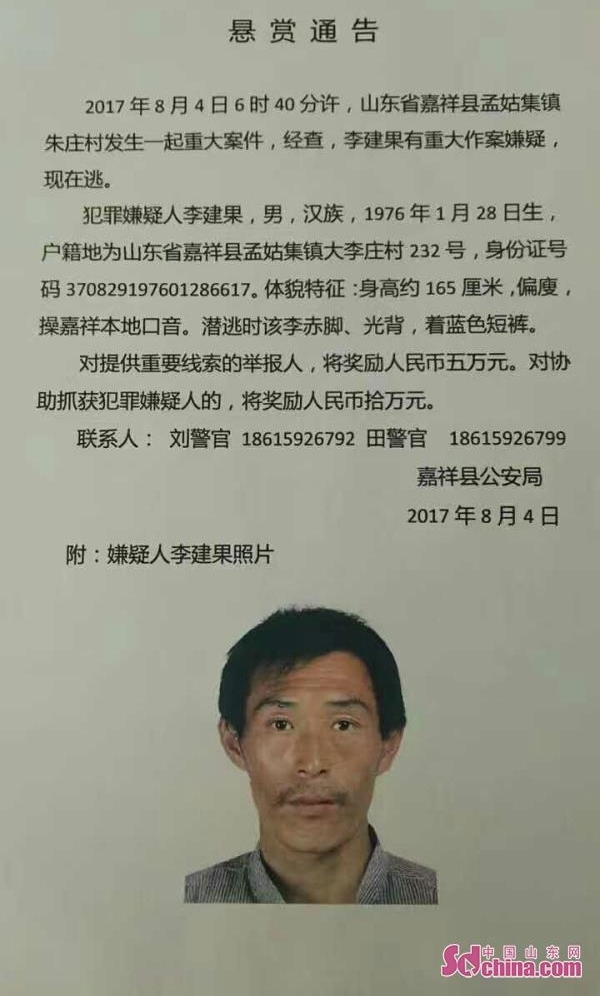 悬赏通告
2017年8月4日6时40分许，山东省嘉祥县孟姑集镇
朱庄村发生一起重大案件，经查，李建果有重大作案嫌疑，
现在逃。
犯罪嫌疑人李建果，男，汉族，1976年1月28日生，
户籍地为山东省嘉祥县孟姑集镇大李庄村232号，身份证号
码370829197601286617。体貌特征：身高约165厘米，偏廋，
操嘉祥本地口音。潜逃时该李赤脚、光背，着蓝色短裤。
对提供重要线索的举报人，将奖励人民币五万元。对协
助抓获犯罪嫌疑人的，将奖励人民币拾万元。
联系人： 刘警官 18615926792 田警官 18615926799
嘉祥县公安局
2017年8月4日
附：嫌疑人李建果照片
中国山东网
Sdchina.com